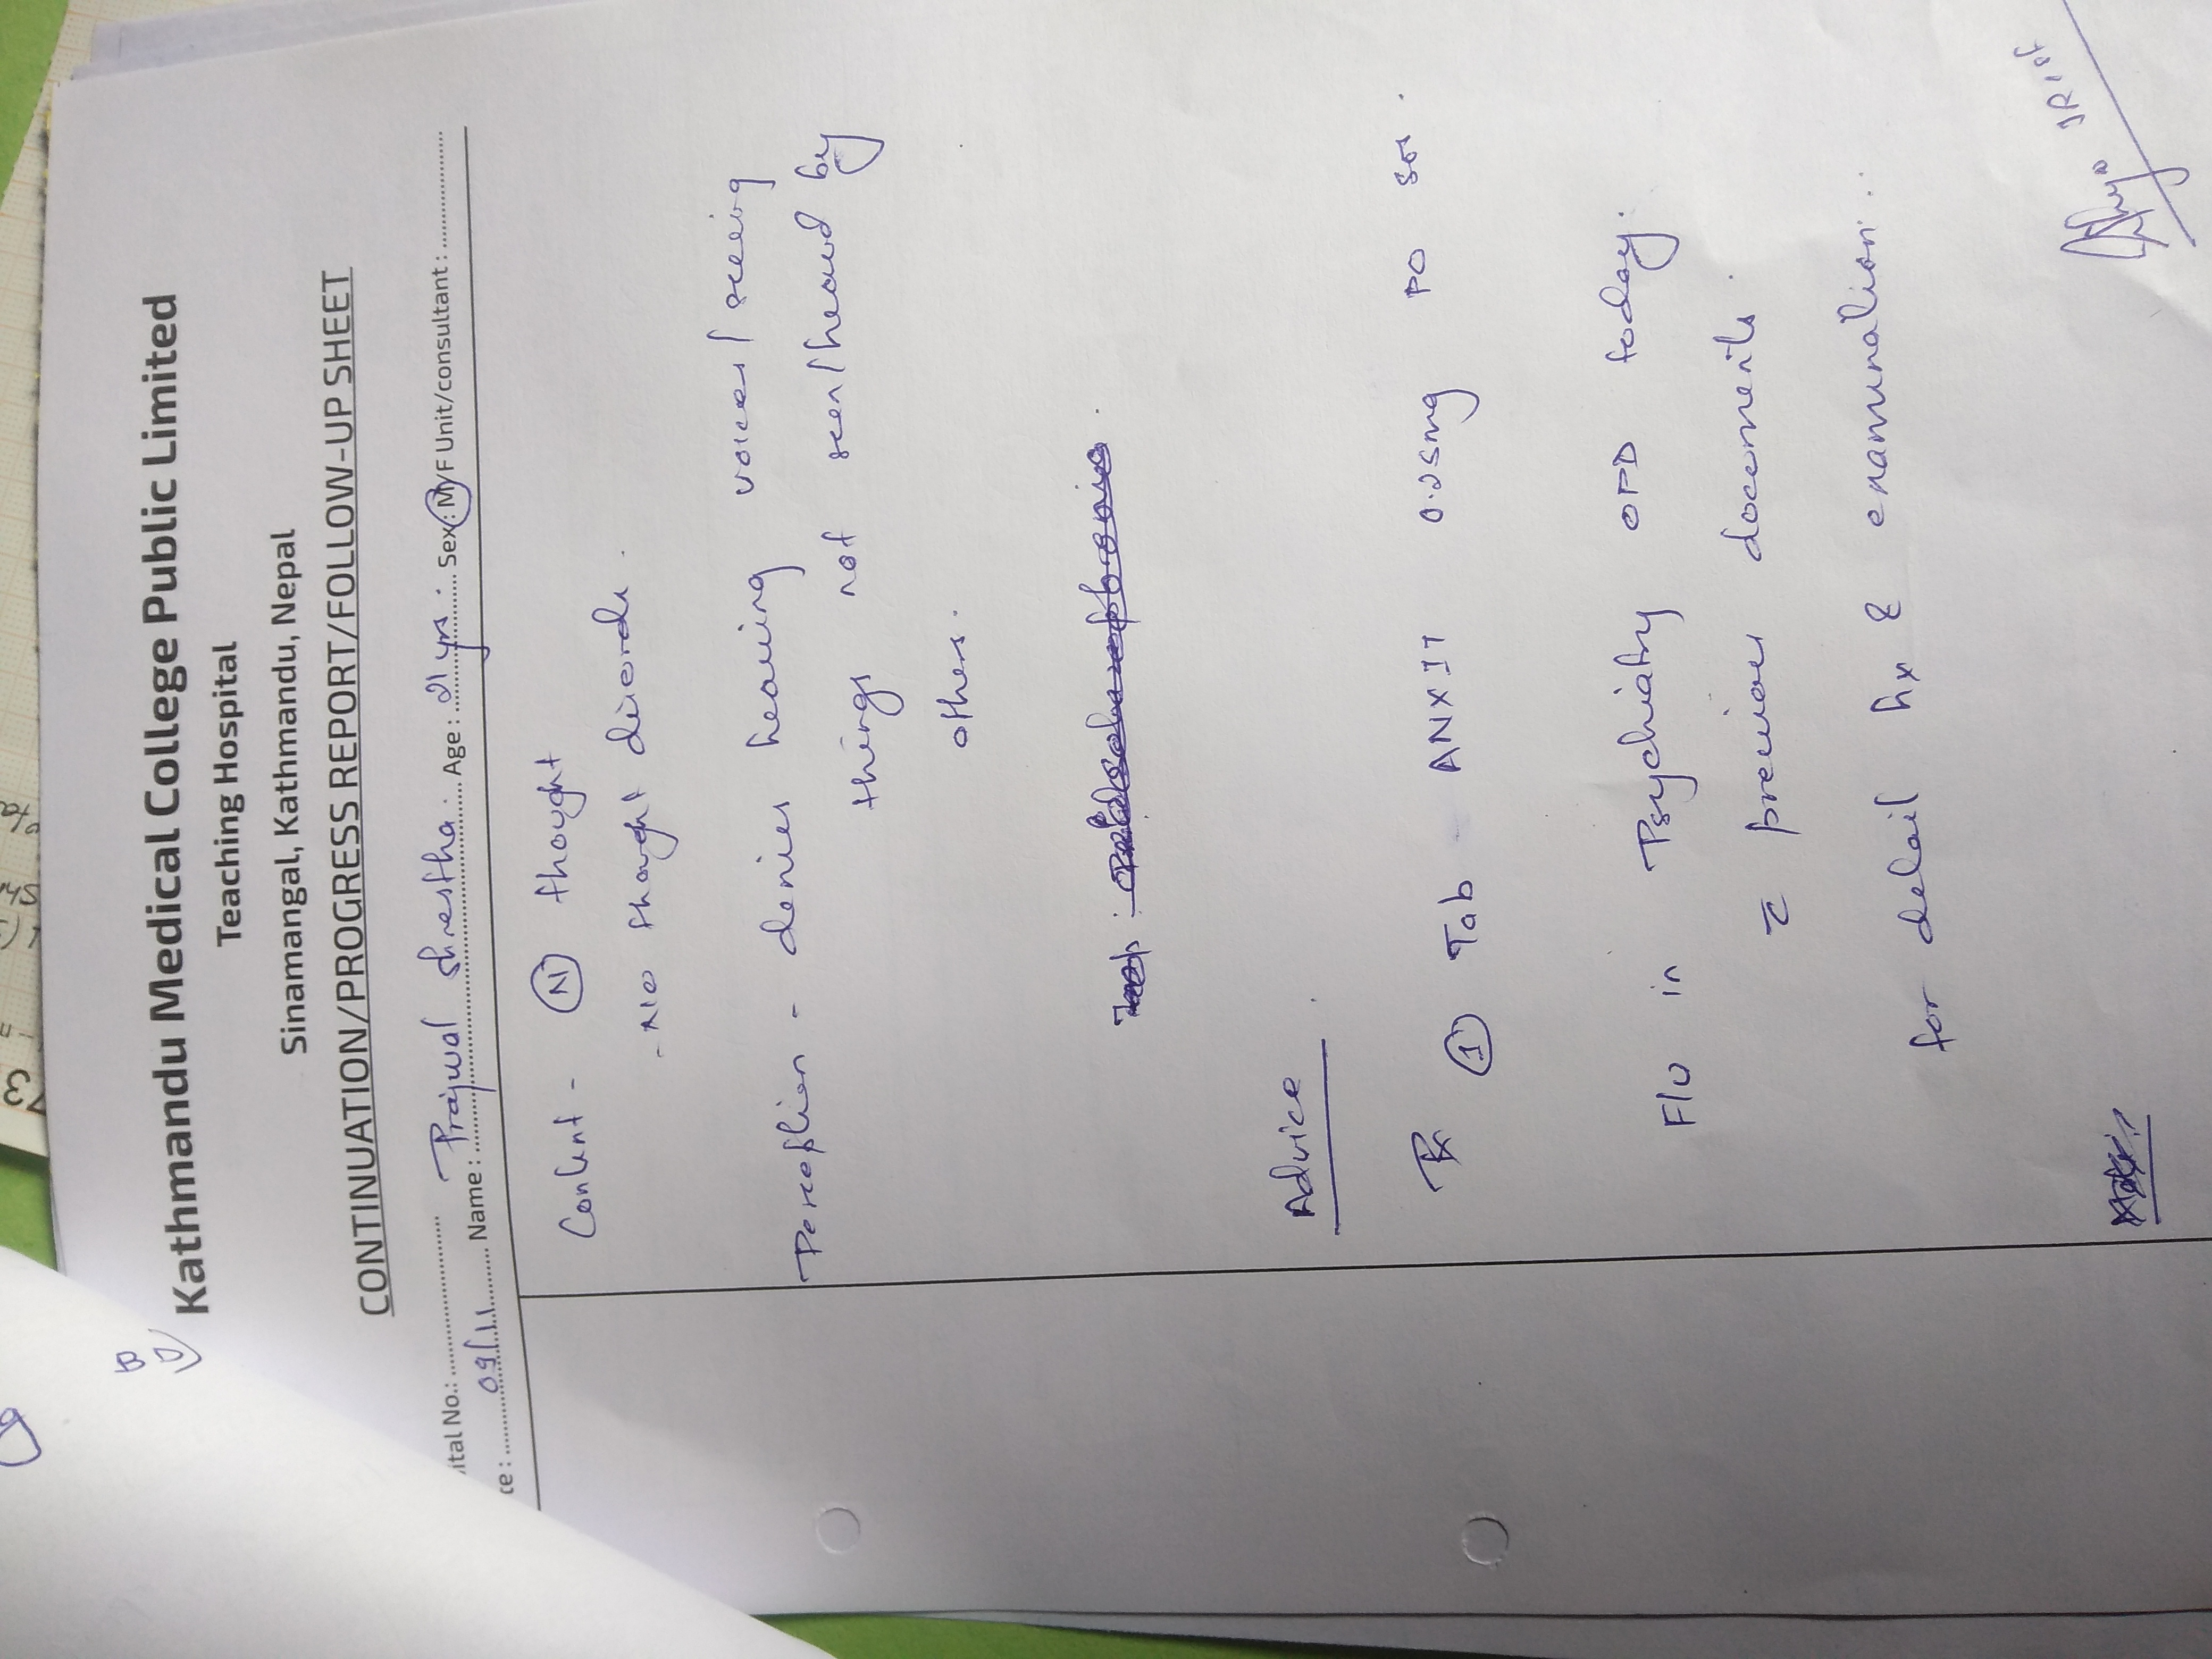 Kathmandu Medical College Public Limited
Teaching Hospital
Sinamangal, Kathmandu, Nepal
CONTINUATION/PROGRESS REPORT/FOLLOW-UP SHEET
ital No.:
ce: 09/11 Name: Prajwal Shrestha. Age: 21yrs. Sex: M/F Unit/consultant:
Content - (N) thought
- No thought disorder.
Perception - denies hearing voices/seeing
things not seen/heard by
others.
Advice
Rx ① Tab ANXIT 0.25mg PO SOS.
F/U in Psychiatry OPD today.
c̄ previous documents.
for detail hx & examination.
JR ist